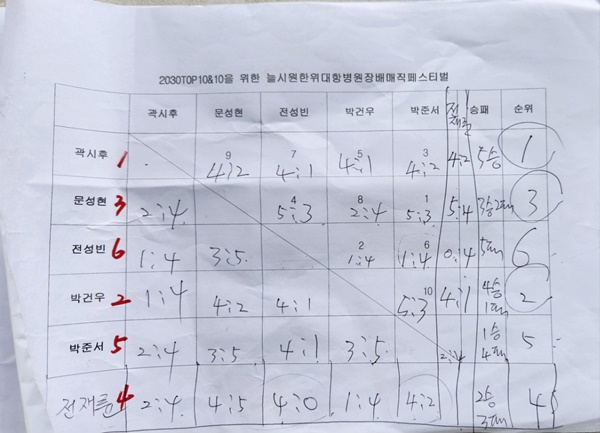 2030TOP10&10을 위한 늘시원한위대항병원장배매직페스티벌
곽시후 문성현 전성빈 박건우 박준서 전재륜 승패 순위
곽시후 1 9 4:2 7 4:1 5 4:1 3 4:2 4:2 5승 1
문성현 3 2:4 4 5:3 8 2:4 1 5:3 5:4 3승2패 3
전성빈 6 1:4 3:5 2 1:4 6 1:4 0:4 5패 6
박건우 2 1:4 4:2 4:1 10 5:3 4:1 4승 1패 2
박준서 5 2:4 3:5 4:1 3:5 2:4 1승 4패 5
전재륜 4 2:4 4:5 4:0 1:4 4:2 2승 3패 4